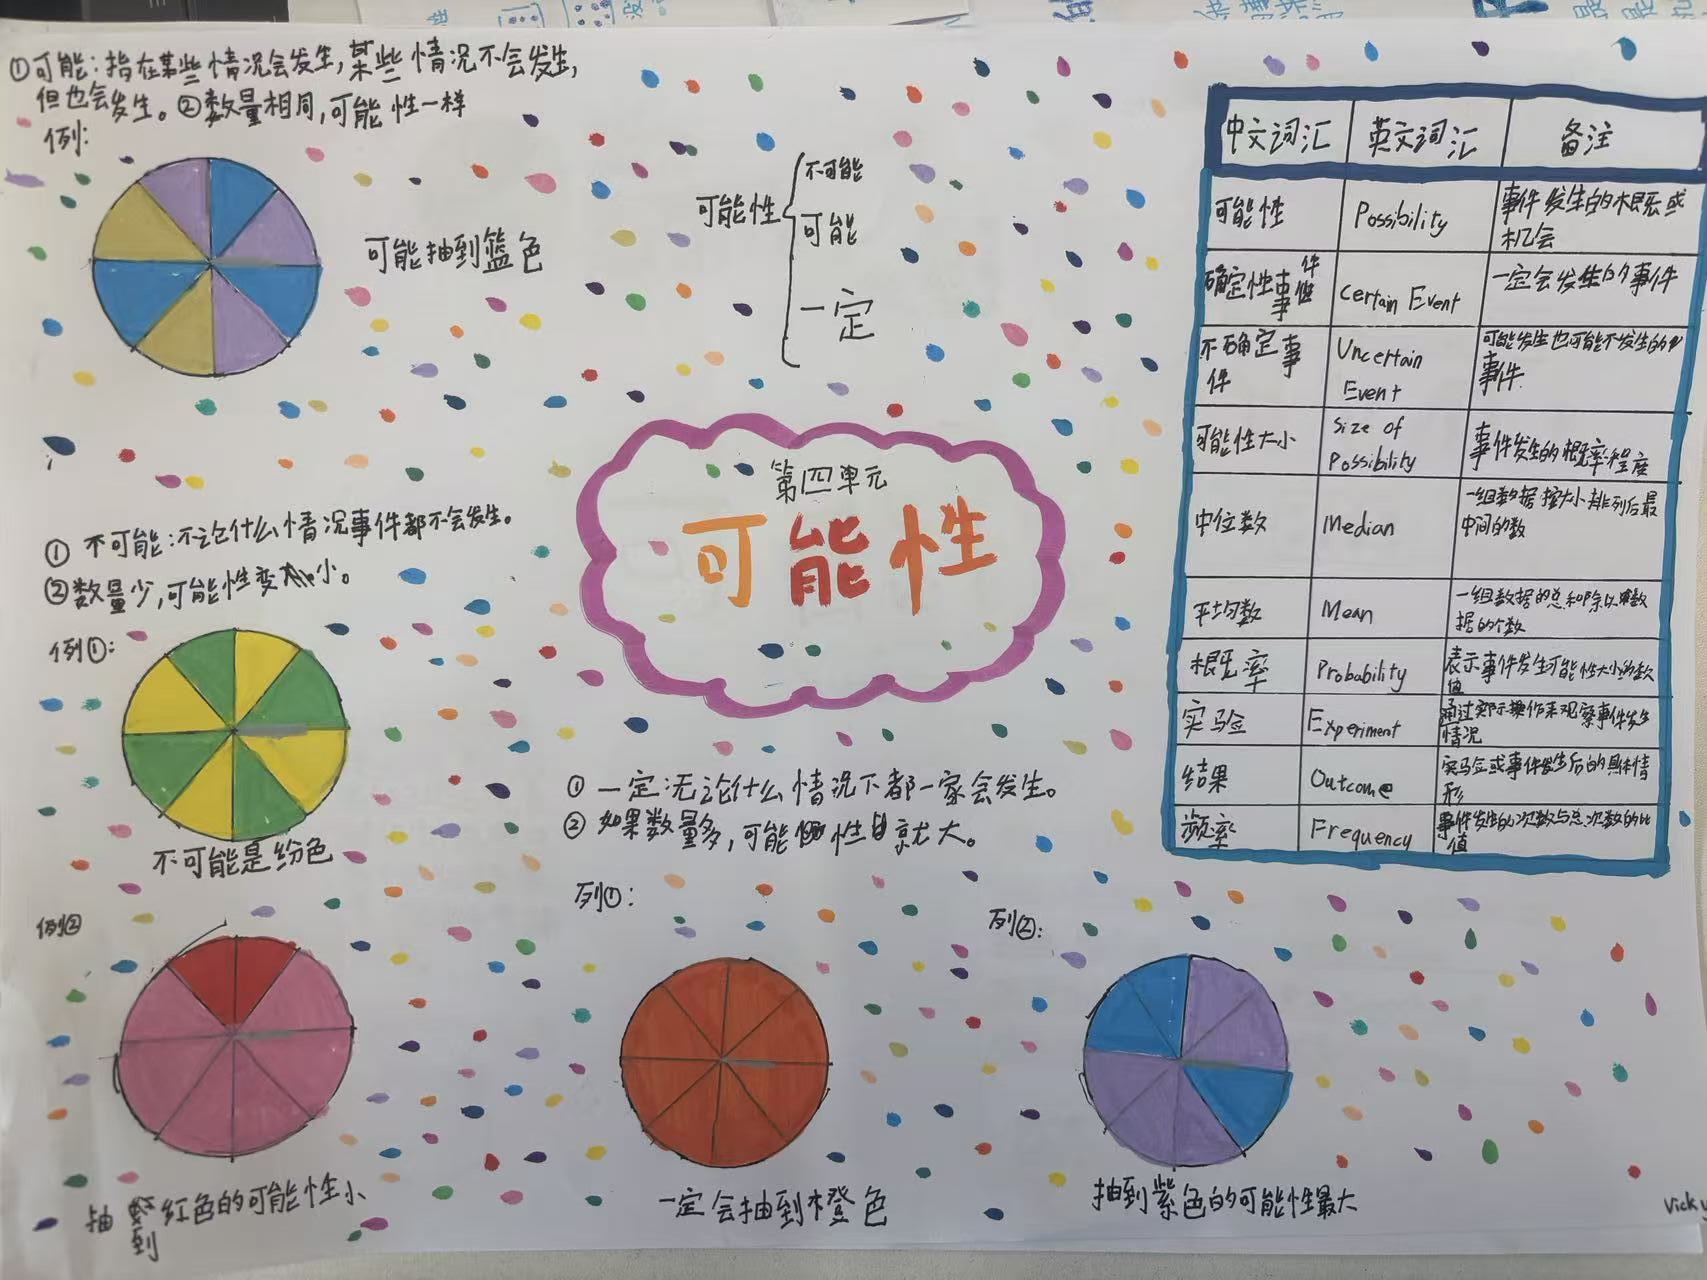 ①可能：指在某些情况会发生，某些情况不会发生，
但也会发生。②数量相同，可能性一样
例：
可能抽到篮色
可能性
不可能
可能
一定
第四单元
可能性
① 不可能：不论什么情况事件都不会发生。
②数量少，可能性变小。
例①：
不可能是纷色
例②
抽到红色的可能性小
① 一定无论什么情况下都一家会发生。
② 如果数量多，可能性就大。
列①：
一定会抽到橙色
列②：
抽到紫色的可能性最大
中文词汇 英文词汇 备注
可能性 Possibility 事件发生的概或
机会
确定性事件 Certain Event 一定会发生的事件
不确定事
件
Uncertain
Event
可能发生也可能不发生的
事件.
可能性大小
Size of
Possibility
事件发生的概率程度
中位数 Median 一组数据按大小排列后最
中间的数
平均数 Mean 一组数据的总和除以数
据的个数
概率 Probability 表示事件发生可能性大小的数
值
实验 Experiment 通过实际操作来观察事件发生
情况
结果 Outcome 实验或事件发生后的具体情
形
频率 Frequency 事件发生的次数与总次数的比
值
Vicky